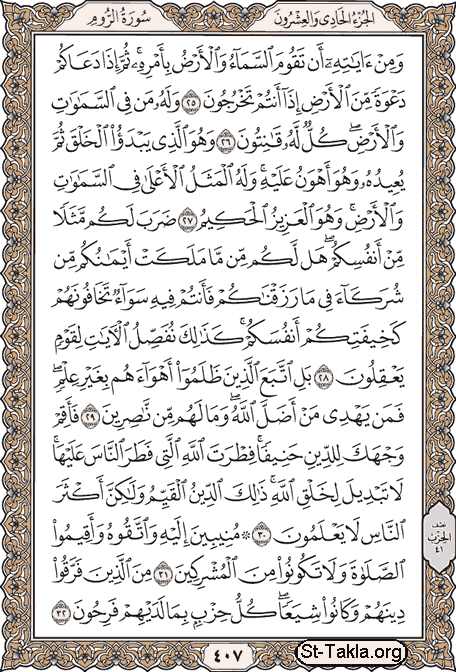 سُورَةُ الرُّومِ
الجُزْءُ الحَادِى وَالعِشْرُونَ
وَمِنْ ءَايَٰتِهِۦٓ أَن تَقُومَ ٱلسَّمَآءُ وَٱلْأَرْضُ بِأَمْرِهِۦ ۚ ثُمَّ إِذَا دَعَاكُمْ
دَعْوَةً مِّنَ ٱلْأَرْضِ إِذَآ أَنتُمْ تَخْرُجُونَ ٢٥ وَلَهُۥ مَن فِى ٱلسَّمَٰوَٰتِ
وَٱلْأَرْضِ ۖ كُلٌّ لَّهُۥ قَٰنِتُونَ ٢٦ وَهُوَ ٱلَّذِى يَبْدَؤُا۟ ٱلْخَلْقَ ثُمَّ
يُعِيدُهُۥ وَهُوَ أَهْوَنُ عَلَيْهِ ۚ وَلَهُ ٱلْمَثَلُ ٱلْأَعْلَىٰ فِى ٱلسَّمَٰوَٰتِ
وَٱلْأَرْضِ ۚ وَهُوَ ٱلْعَزِيزُ ٱلْحَكِيمُ ٢٧ ضَرَبَ لَكُم مَّثَلًا
مِّنْ أَنفُسِكُمْ ۖ هَل لَّكُم مِّن مَّا مَلَكَتْ أَيْمَٰنُكُم مِّن
شُرَكَآءَ فِى مَا رَزَقْنَٰكُمْ فَأَنتُمْ فِيهِ سَوَآءٌ تَخَافُونَهُمْ
كَخِيفَتِكُمْ أَنفُسَكُمْ ۚ كَذَٰلِكَ نُفَصِّلُ ٱلْءَايَٰتِ لِقَوْمٍ
يَعْقِلُونَ ٢٨ بَلِ ٱتَّبَعَ ٱلَّذِينَ ظَلَمُوٓا۟ أَهْوَآءَهُم بِغَيْرِ عِلْمٍ ۖ
فَمَن يَهْدِى مَنْ أَضَلَّ ٱللَّهُ ۖ وَمَا لَهُم مِّن نَّٰصِرِينَ ٢٩ فَأَقِمْ
وَجْهَكَ لِلدِّينِ حَنِيفًا ۚ فِطْرَتَ ٱللَّهِ ٱلَّتِى فَطَرَ ٱلنَّاسَ عَلَيْهَا ۚ
لَا تَبْدِيلَ لِخَلْقِ ٱللَّهِ ۚ ذَٰلِكَ ٱلدِّينُ ٱلْقَيِّمُ وَلَٰكِنَّ أَكْثَرَ
ٱلنَّاسِ لَا يَعْلَمُونَ ٣٠ ۞ مُنِيبِينَ إِلَيْهِ وَٱتَّقُوهُ وَأَقِيمُوا۟
ٱلصَّلَوٰةَ وَلَا تَكُونُوا۟ مِنَ ٱلْمُشْرِكِينَ ٣١ مِنَ ٱلَّذِينَ فَرَّقُوا۟
دِينَهُمْ وَكَانُوا۟ شِيَعًا ۖ كُلُّ حِزْبٍۭ بِمَا لَدَيْهِمْ فَرِحُونَ ٣٢
نصف
الحزب
٤١
٤٠٧
St-Takla.org